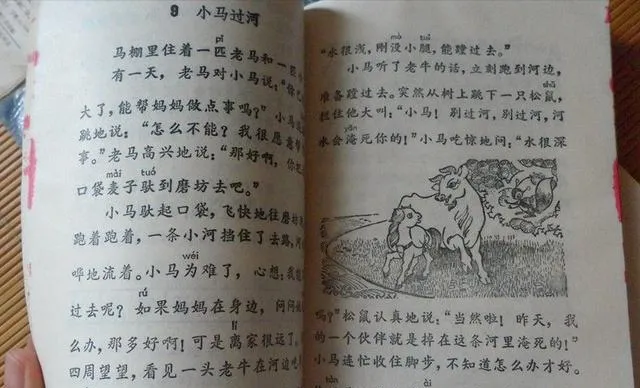 9 小马过河
pǐ
马棚里住着一匹老马和一匹
有一天，老马对小马说：“你已
大了，能帮妈妈做点事吗？”小马
跳地说：“怎么不能？我很愿意帮
事。”老马高兴地说：“那好啊，你把
mài tuó
口袋麦子驮到磨坊去吧。”
小马驮起口袋，飞快地往磨坊
跑着跑着，一条小河挡住了去路，河
wéi
哗地流着。小马为难了，心想：我能
rú
过去呢？如果妈妈在身边，问问
lí
么办，那多好啊！可是离家很远了。
四周望望，看见一头老牛在河边吃
mò tuǐ
“水很浅，刚没小腿，能蹚过去。”
小马听了老牛的话，立刻跑到河边，
shǔ
准备蹚过去。突然从树上跳下一只松鼠，
拦住他大叫：“小马！别过河，别过河，河
yān
水会淹死你的！”小马吃惊地问：“水很深
吗？”松鼠认真地说：“当然啦！昨天，我
的一个伙伴就是掉在这条河里淹死的！”
小马连忙收住脚步，不知道怎么办才好。